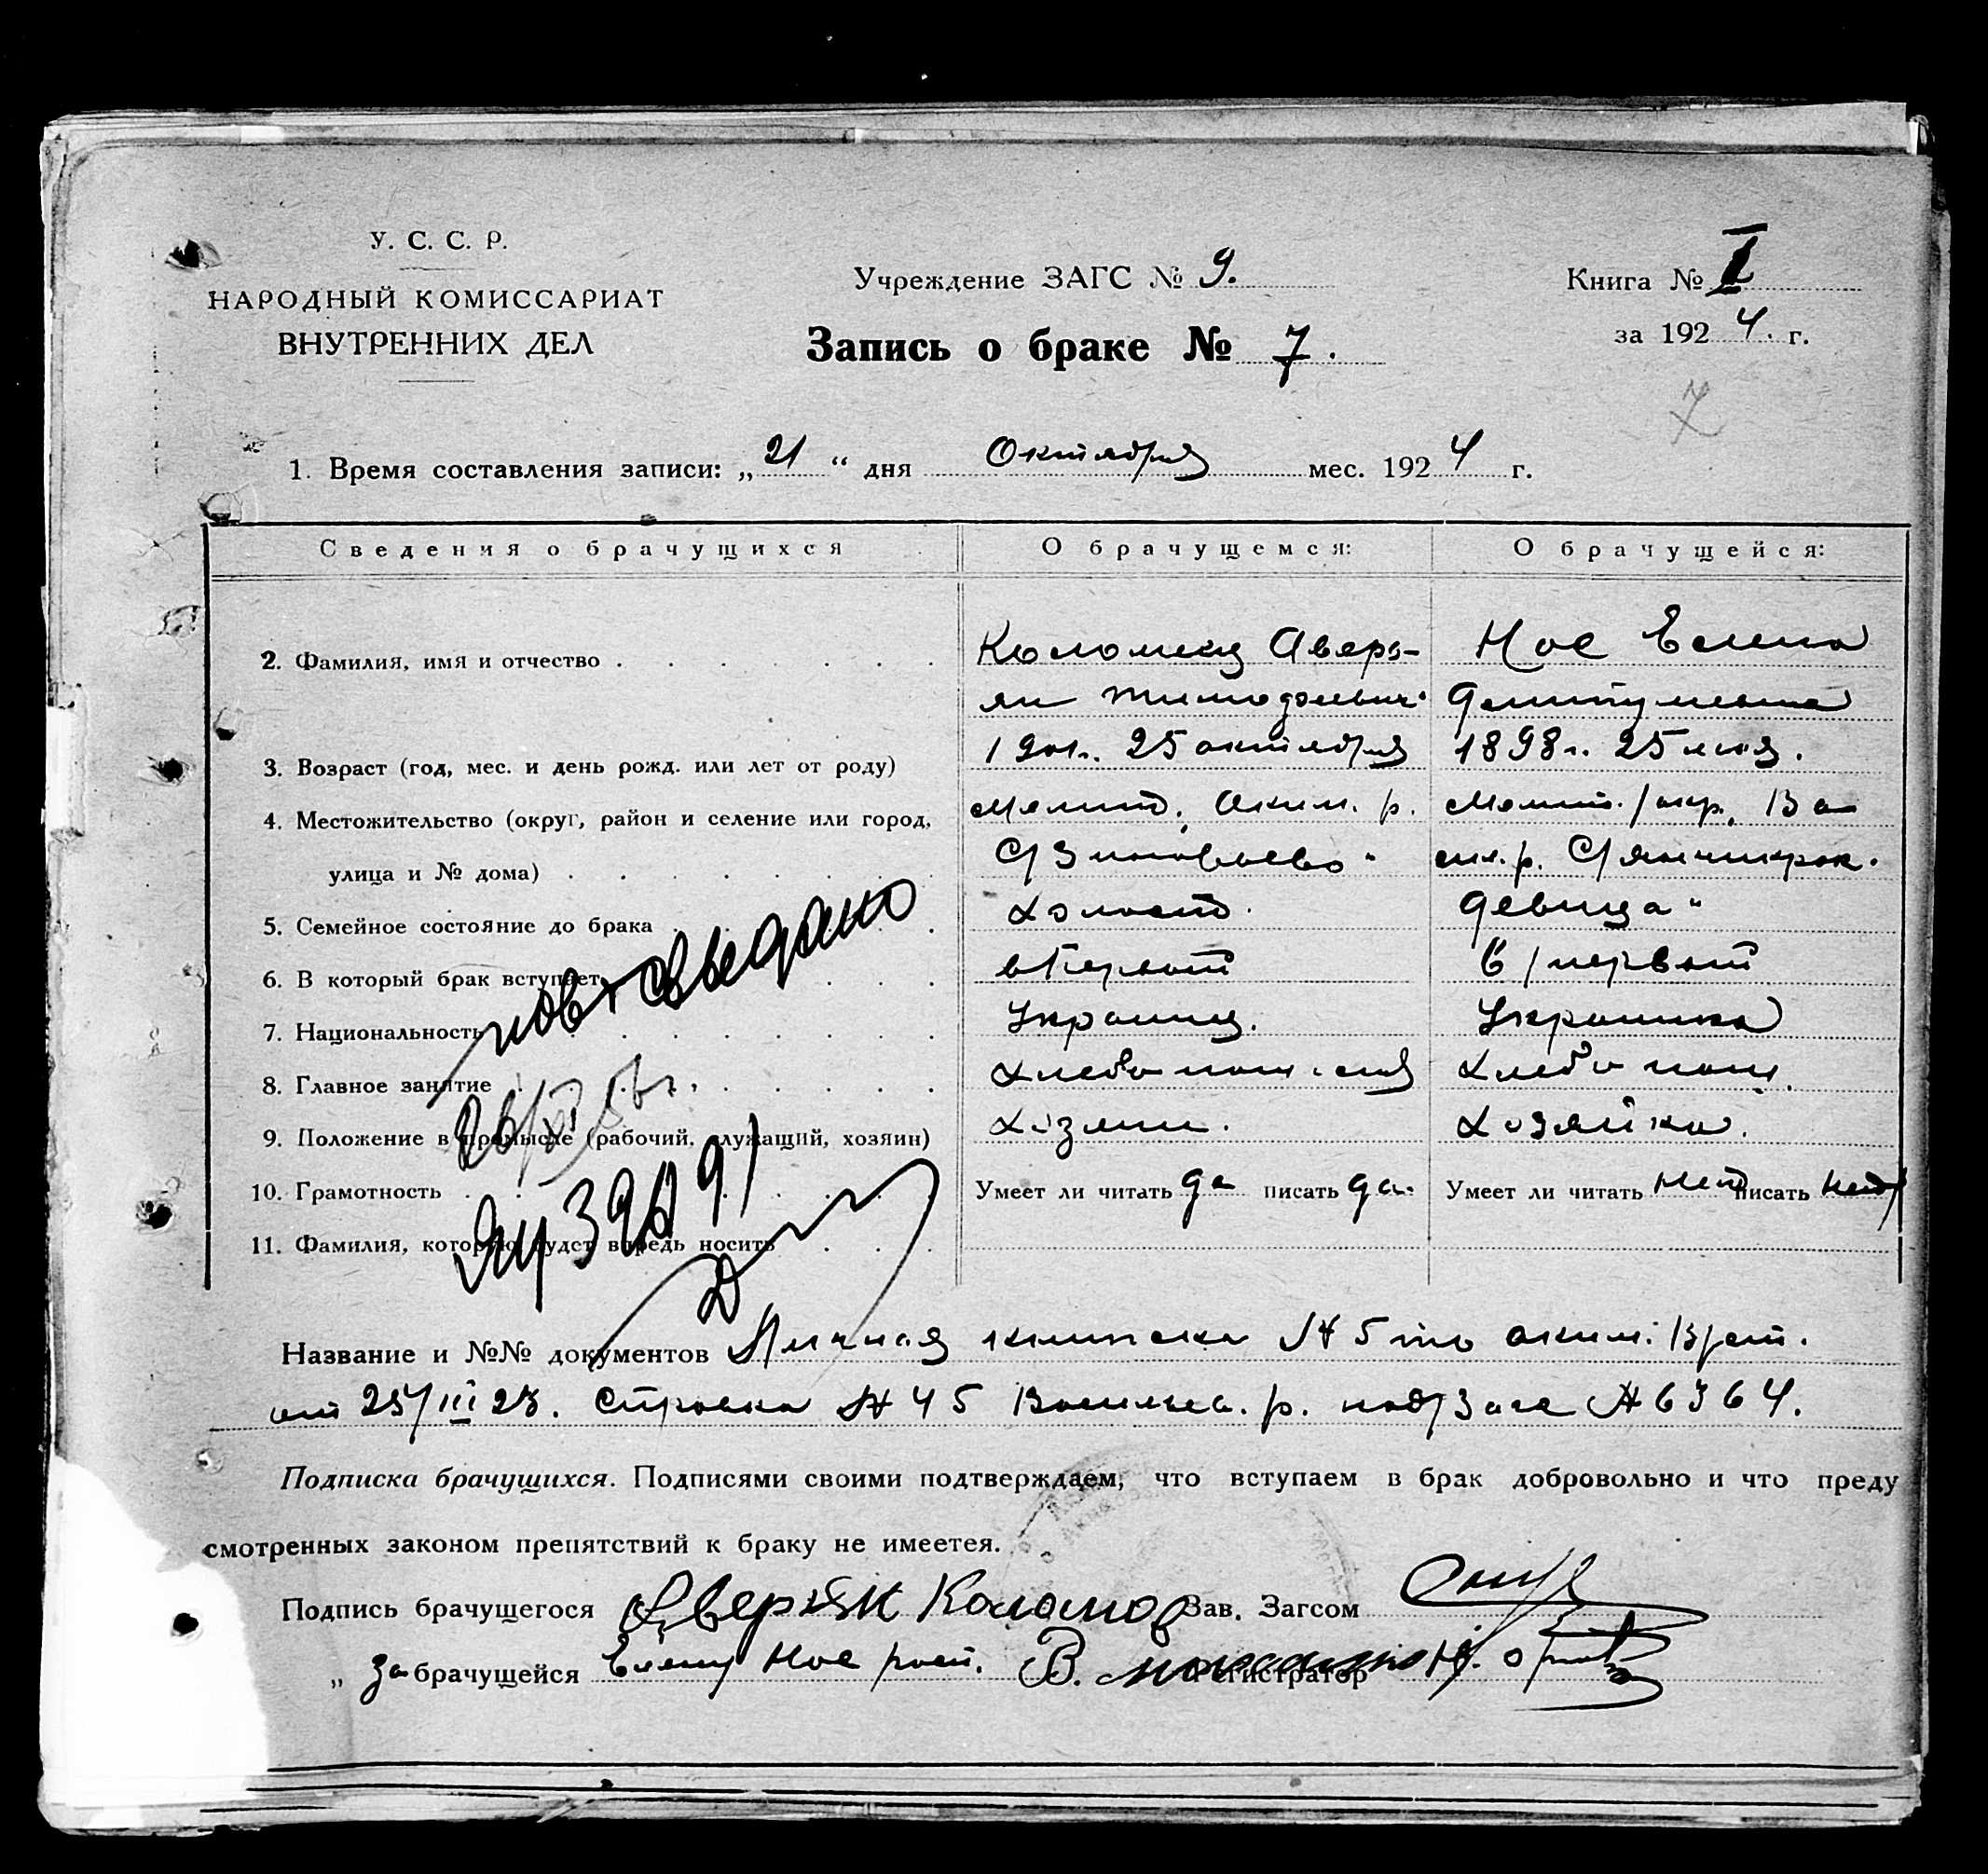 У. С. С. Р.
НАРОДНЫЙ КОМИССАРИАТ
ВНУТРЕННИХ ДЕЛ
Учреждение ЗАГС № 9.
Книга № I
Запись о браке № 7.
за 1924. г.
7
1. Время составления записи: „21“ дня Октября мес. 1924 г.
Сведения о брачущихся О брачущемся: О брачущейся:
2. Фамилия, имя и отчество Коломиец Аверь- Ное Елена
ян Тимофеевич
3. Возраст (год, мес. и день рожд. или лет от роду) 1901г. 25 октября 1898г. 25 мая.
4. Местожительство (округ, район и селение или город, Мелит. Аким. р. Мелит. окр. Ва-
улица и № дома) С/Зиновьево сил. р. С/Янчикрак.
5. Семейное состояние до брака холост. девица
6. В который брак вступает в первый в первый
7. Национальность Украинец. Украинка
8. Главное занятие Хлебопашество Хлебопаш.
9. Положение в промысле (рабочий, служащий, хозяин) Хозяин. Хозяйка.
10. Грамотность Умеет ли читать да писать да. Умеет ли читать нет писать нет
11. Фамилия, которую будет впредь носить
повт св выдано
26/XI
Название и №№ документов Личная книжка № 5 аким.
от 25/III 23. Справка № 45 Васильев. р. подзагс № 6364.
Подписка брачущихся. Подписями своими подтверждаем, что вступаем в брак добровольно и что преду
смотренных законом препятствий к браку не имеетея.
Подпись брачущегося Аверян Коломо Зав. Загсом
„ за брачущейся Елену Ное расп. В. Регистратор